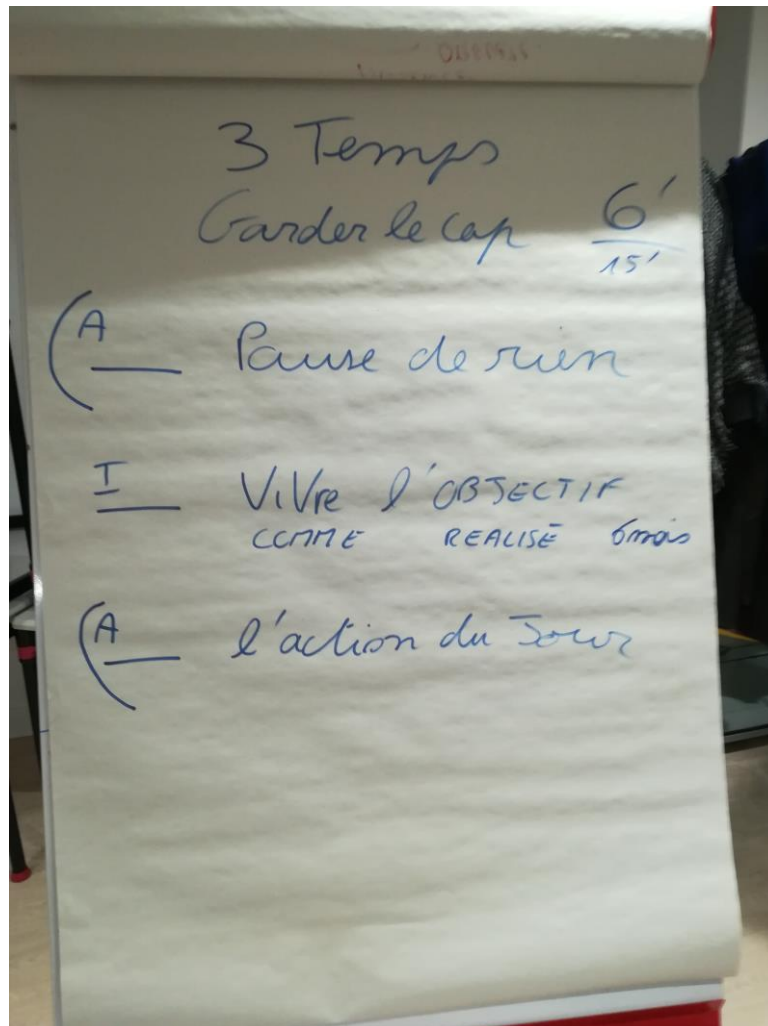 3 Temps
Garder le cap 6'
15'
A Pause de rien
I ViVre l'OBJECTIF
COMME REALISÉ 6 mois
A l'action du Jour